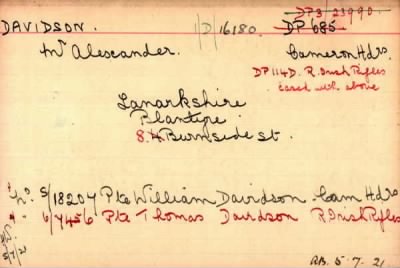 DP3/23990.
DAVIDSON. 1/D/16180. DP 685
Mr Alexander. Cameron Hdrs.
DP 114 D. R. Irish Rifles
Cased with above
Lanarkshire
Blantyre
8. Burnside St.
No. S/18207 Pte William Davidson Cam Hdrs
" 6/7456 Pte Thomas Davidson R Irish Rifles
5/7/21
5-7-21